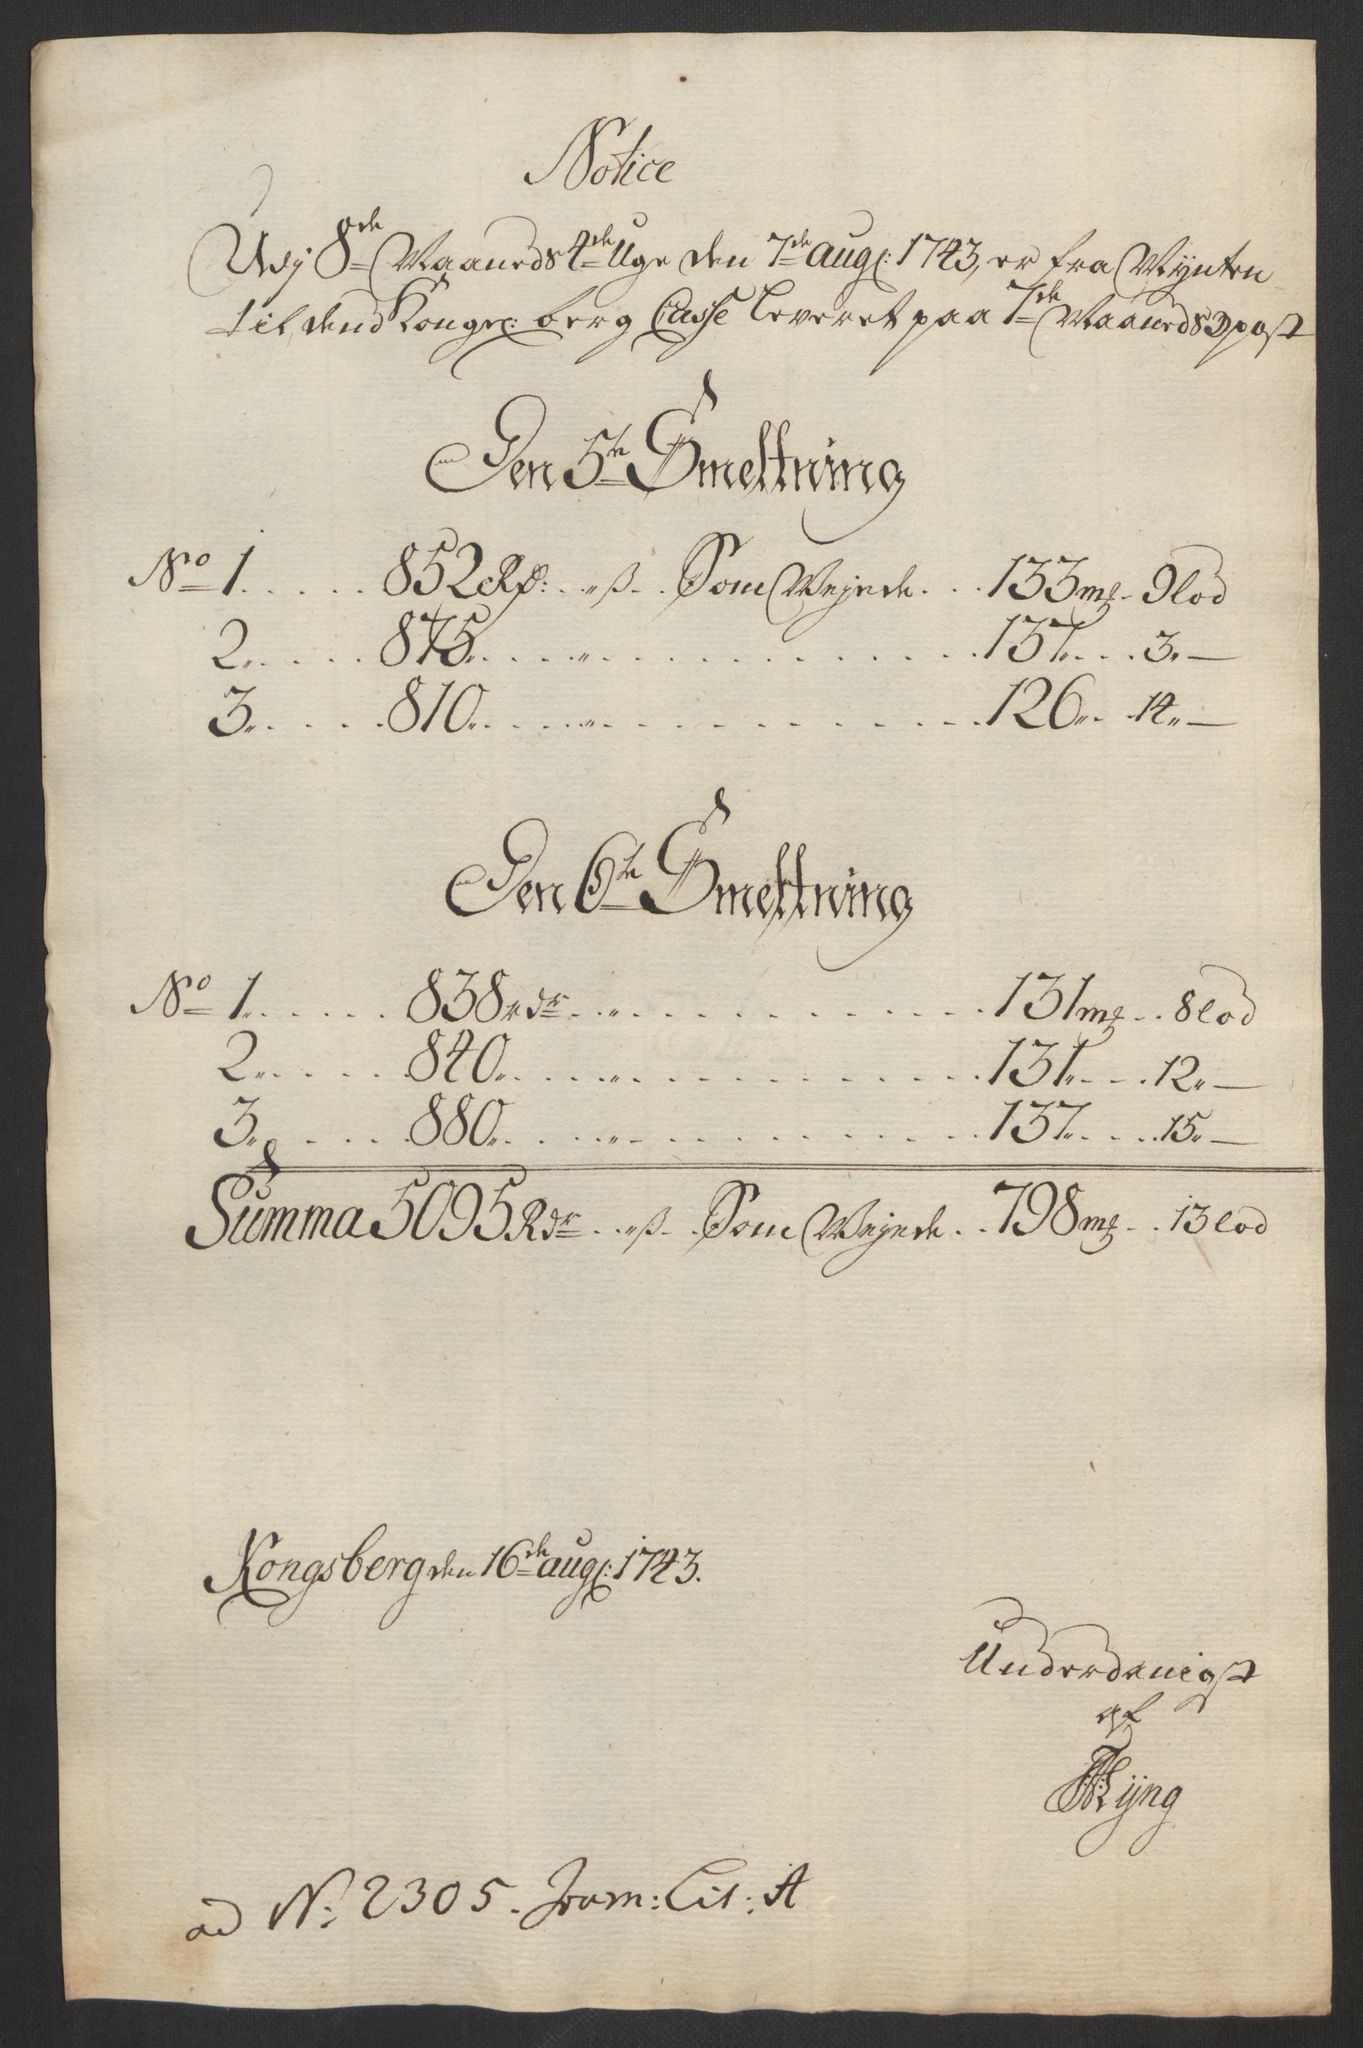 Notice
Udj 8de Maaneds 4de Uge den 7de Augs: 1743, er fra Mÿnten
til dend Kongel: berg Casse leveret paa 7de Maaneds post
Den 5te Smeltning
No 1. . . . . . 852 Rd: . . „ ß . . Som Vejede . . . 133 mk . 9 lod
2 . . . . . 875 . . . . . „ . . . . . . . . . . 137 . . . . 3 „ —
3 . . . . . 810 . . . . . „ . . . . . . . . . . 126 . . 14 „ —
Den 6te Smeltning
No 1 . . . . . 838 rdr . . „ . . . . . . . . . . 131 mk . . 8 lod
2 . . . . . 840 . . . . . „ . . . . . . . . . . 131 . . . . 12 „ —
3 . . . . . 880 . . . . . „ . . . . . . . . . . 137 . . . . 15 „ —
Summa 5095 Rdr . . „ ß . . Som Vejede . . 798 mk . . 13 lod
Kongsberg den 16de augs: 1743.
Underdanigst
af
ad N: 2305. Lit: A